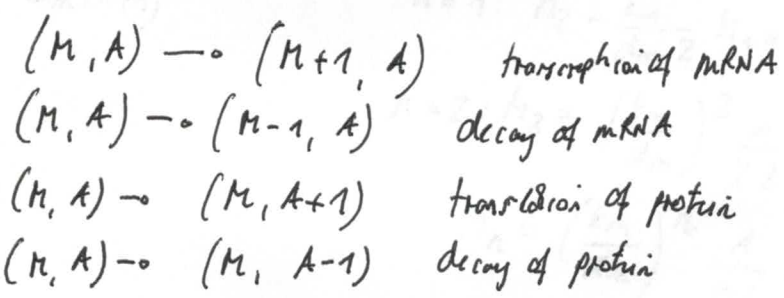 (M, A) → (M+1, A) transcription of mRNA
(M, A) → (M-1, A) decay of mRNA
(M, A) → (M, A+1) translation of protein
(M, A) → (M, A-1) decay of protein